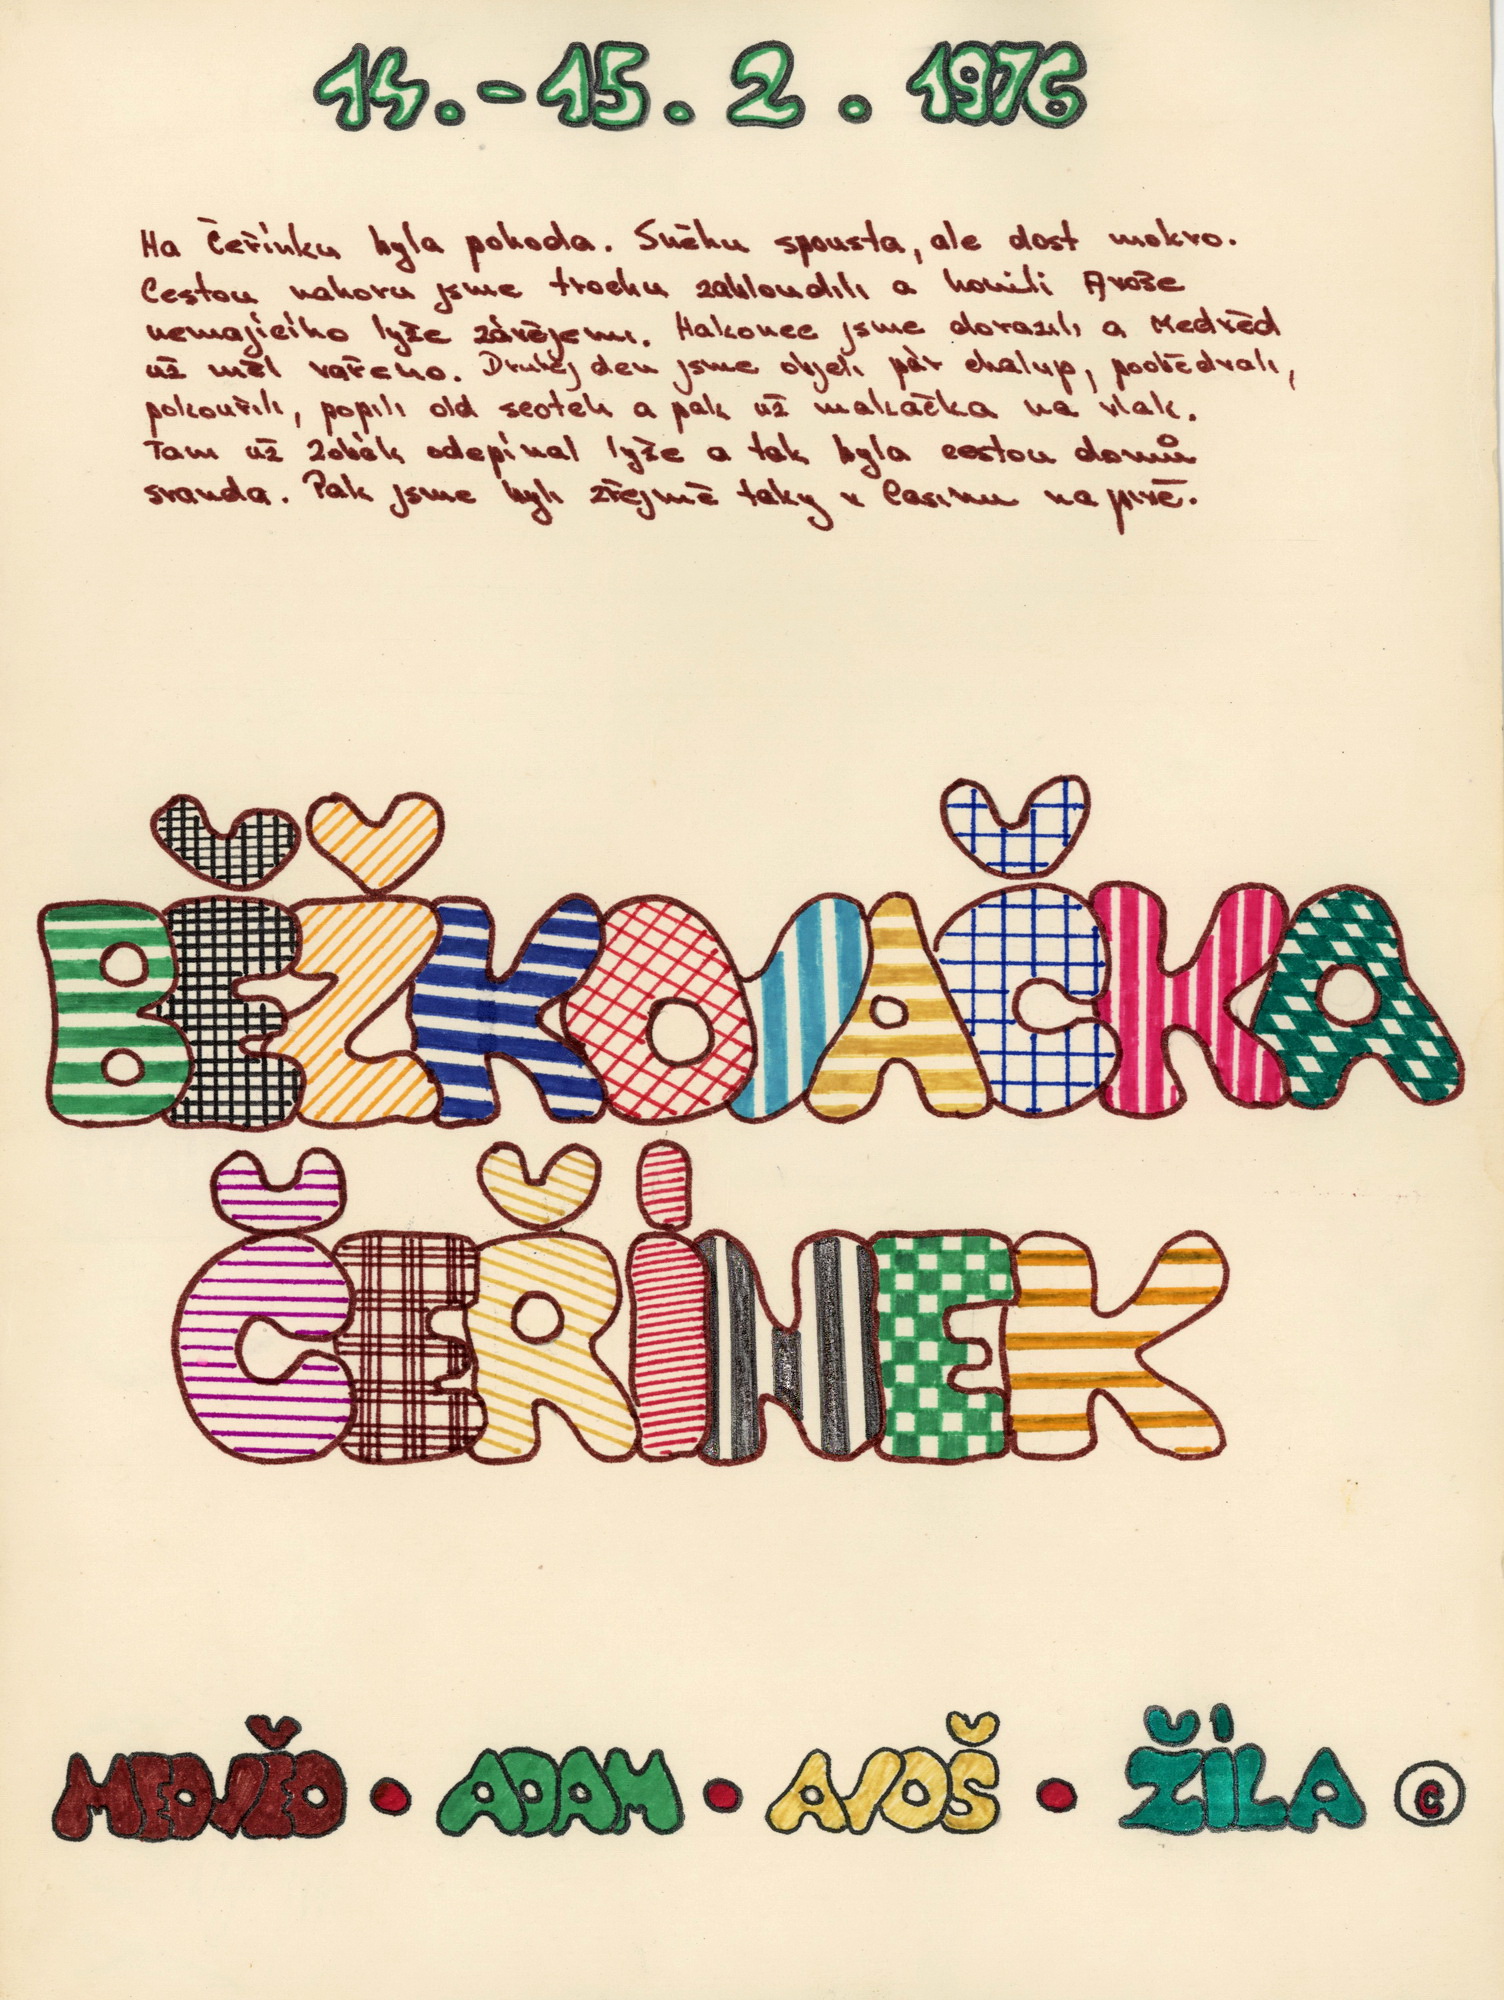 14.-15. 2. 1976
Na Čeřínku byla pohoda. Sněhu spousta, ale dost mokro.
Cestou nahoru jsme trochu zabloudili a honili Avoše
nemajícího lyže závějemi. Nakonec jsme dorazili a Medvěd
už měl vařeno. Druhej den jsme objeli pár chalup, poobědvali,
pokouřili, popili old scotch a pak už makačka na vlak.
Tam už Zobák odepínal lyže a tak byla cestou domů
sranda. Pak jsme byli zřejmě taky v Casinu na pivě.
BĚŽKOVAČKA
ČEŘÍNEK
MEDVĚD • ADAM • AVOŠ • ŽÍLA ©